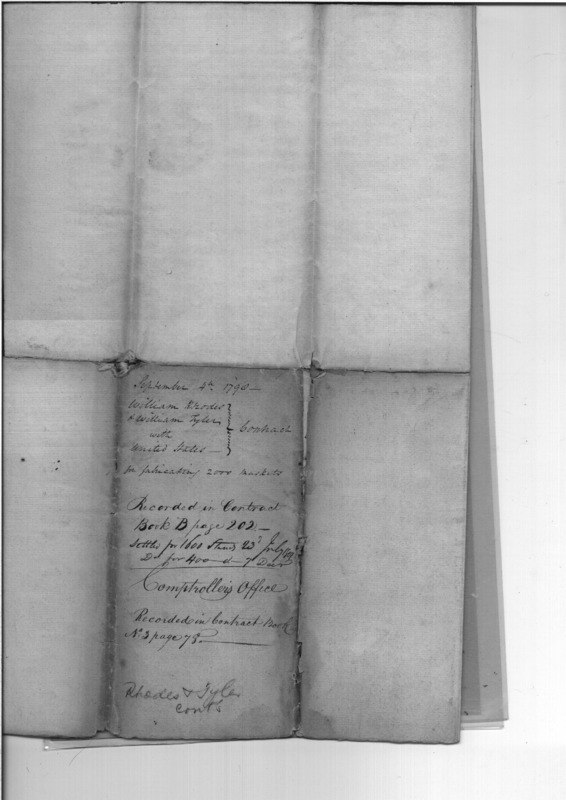 September 4th 1798 —
William Rhodes
& William Tyler
with
United States —
Contract
for fabricating 2000 muskets
Recorded in Contract
Book B page 202. —
Settled for 1600 Stands 23d July
Do for 400 do 7
Comptroller's Office
Recorded in Contract Book
No 3 page 78.
Rhodes & Tyler
Conts